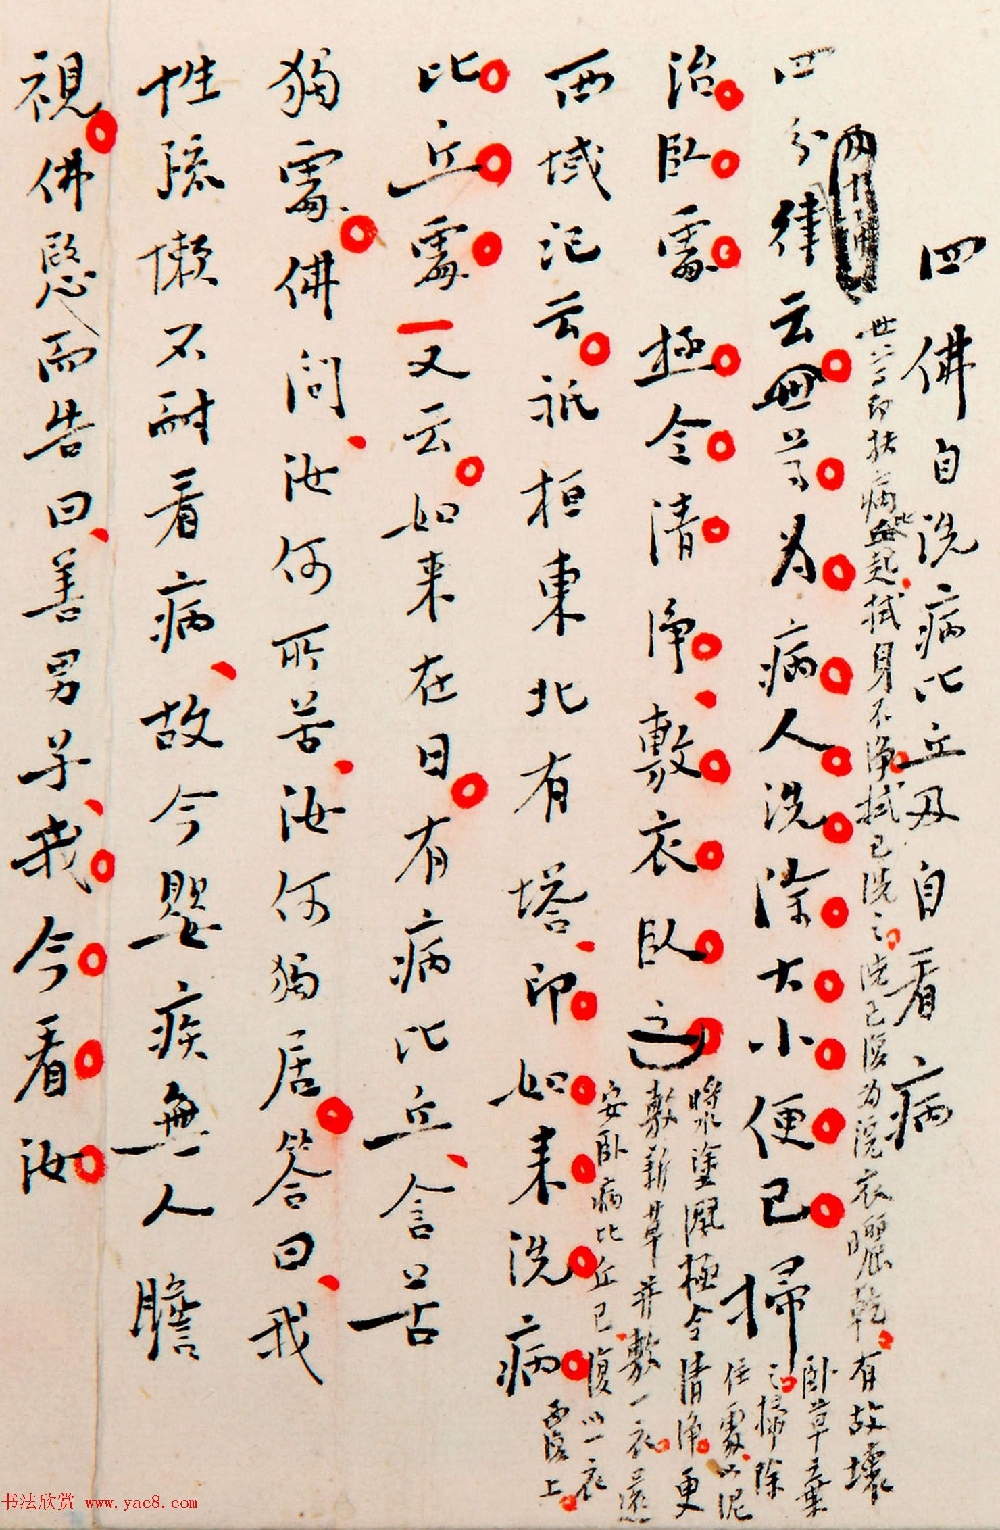 四 佛自洗病比丘及自看病
四分律云世尊为病人洗除大小便已掃
世尊即扶病比丘起拭身不淨拭已洗之洗已復为浣衣曬乾有故壞
卧草棄
之掃除
住處以泥
治臥處極令清淨敷衣臥之
漿水塗灑極令清淨更
敷新草并敷一衣還
安卧病比丘已復以一衣
覆上
西域记云祇桓東北有塔即如来洗病
比丘處又云如来在日有病比丘含苦
獨處佛问汝何所苦汝何獨居答曰我
性疏懒不耐看病故今嬰疾無人瞻
視佛愍而告曰善男子我今看汝
书法欣赏 www.yac8.com